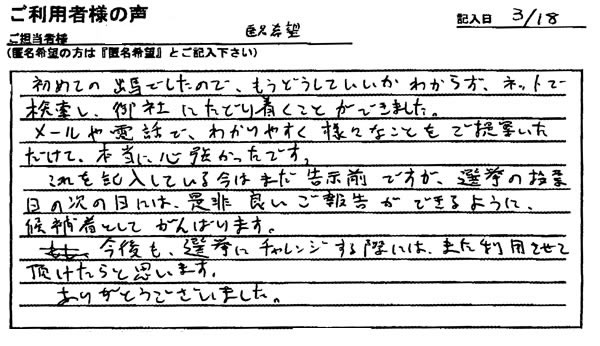 ご利用者様の声
記入日 3/18
ご担当者様 匿名希望
(匿名希望の方は『匿名希望』とご記入下さい)
初めての出馬でしたので、もうどうしていいかわからず、ネットで
検索し、御社にたどり着くことができました。
メールや電話で、わかりやすく様々なことをご提案いた
だけて、本当に心強かったです。
これを記入している今はまだ告示前ですが、選挙の投票
日の次の日には、是非良いご報告ができるように、
候補者としてがんばります。
今後も、選挙にチャレンジする際には、また利用させて
頂けたらと思います。
ありがとうございました。